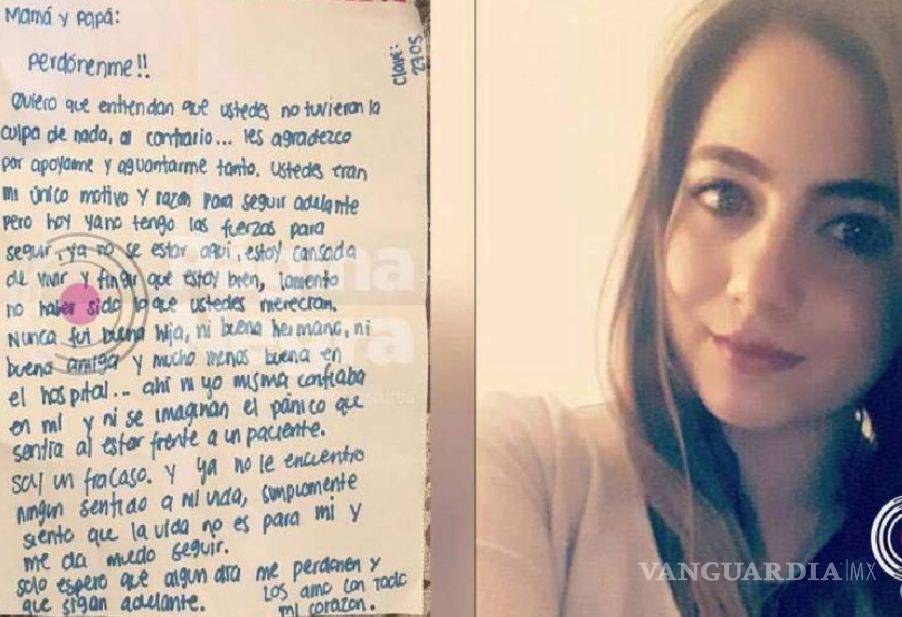 Mamá y Papá:
Clave:
2705
Perdónenme!!
Quiero que entiendan que ustedes no tuvieron la
culpa de nada, al contrario... les agradezco
por apoyarme y aguantarme tanto. Ustedes eran
mi único motivo y razón para seguir adelante
pero hoy ya no tengo las fuerzas para
seguir, ya no se estar aquí, estoy cansada
de vivir y fingir que estoy bien, lamento
no haber sido lo que ustedes merecían.
Nunca fui buena hija, ni buena hermana, ni
buena amiga y mucho menos buena en
el hospital... ahí ni yo misma confiaba
en mi y ni se imaginan el pánico que
sentía al estar frente a un paciente.
Soy un fracaso. Y ya no le encuentro
ningun sentido a mi vida, simplemente
siento que la vida no es para mi y
me da miedo seguir.
Solo espero que algun día me perdonen y
que sigan adelante.
Los amo con todo
mi corazon.
VANGUARDIA|MX